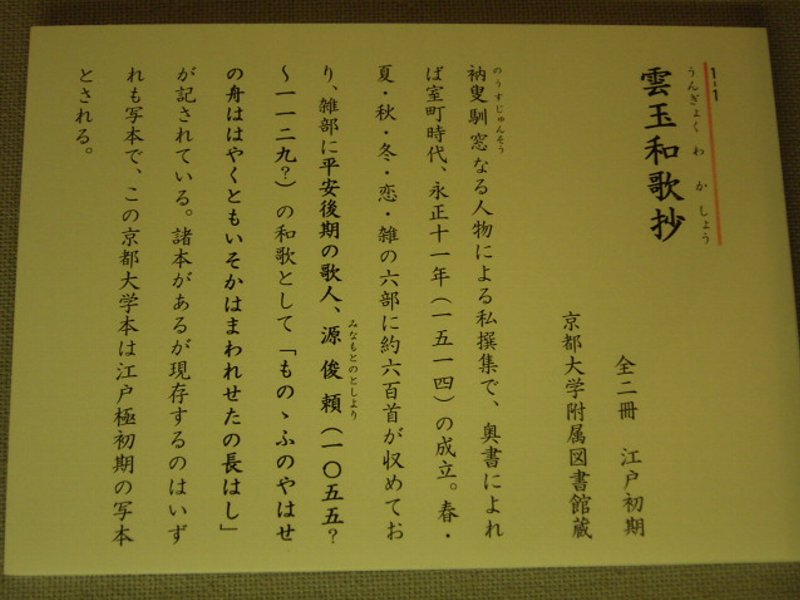 1-1
うんぎょくわかしょう
雲玉和歌抄
全二冊　江戸初期
京都大学附属図書館蔵
のうすじゅんそう
衲叟馴窓なる人物による私撰集で、奥書によれ
ば室町時代、永正十一年（一五一四）の成立。春・
夏・秋・冬・恋・雑の六部に約六百首が収めてお
り、雑部に平安後期の歌人、源俊頼（一〇五五？
みなもとのとしより
〜一一二九？）の和歌として「ものゝふのやはせ
の舟ははやくともいそかはまわれせたの長はし」
が記されている。諸本があるが現存するのはいず
れも写本で、この京都大学本は江戸極初期の写本
とされる。